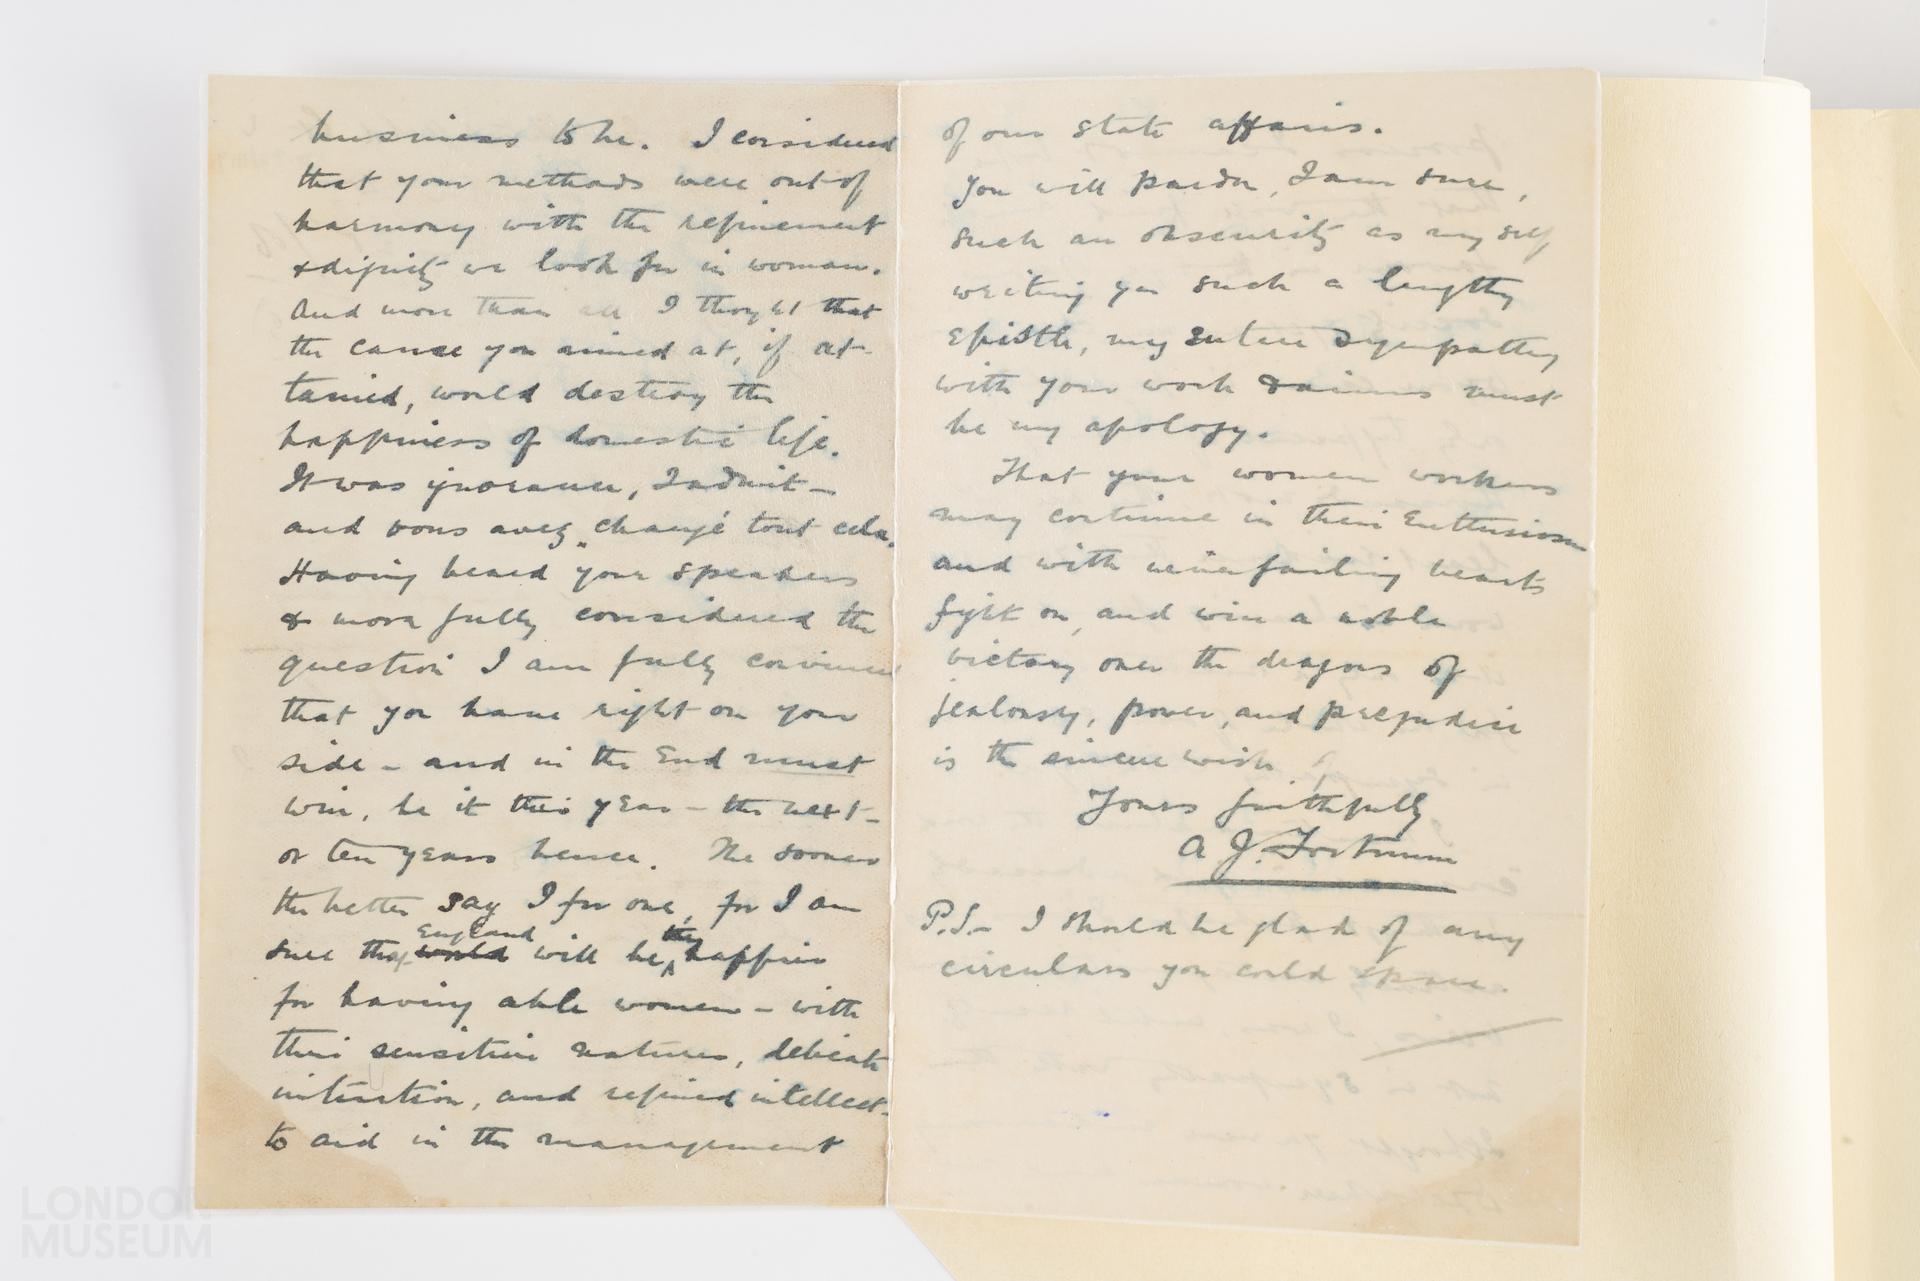 business to be. I considered
that your methods were out of
harmony with the refinement
& dignity we look for in woman.
And more than all I thought that
the cause you aimed at, if at-
tained, would destroy the
happiness of domestic life.
It was ignorance, I admit –
and vous avez changé tout cela.
Having heard your speakers
& more fully considered the
question I am fully convinced
that you have right on your
side – and in the End must
win, be it this year – the next –
or ten years hence. The sooner
the better say I for one, for I am
sure that world England will be the happier
for having able women – with
their sensitive natures, delicate
intuition, and refined intellect –
to aid in the management
of our state affairs.
You will pardon, I am sure,
such an obscurity as myself
writing you such a lengthy
Epistle, my entire sympathy
with your work & aims must
be my apology.
That your women workers
may continue in their Enthusiasm
and with unfailing hearts
fight on, and win a noble
victory over the dragons of
jealousy, power, and prejudice
is the sincere wish of
Yours faithfully
A J. Fortnum
P.S. – I should be glad of any
circulars you could spare.
LONDON
MUSEUM